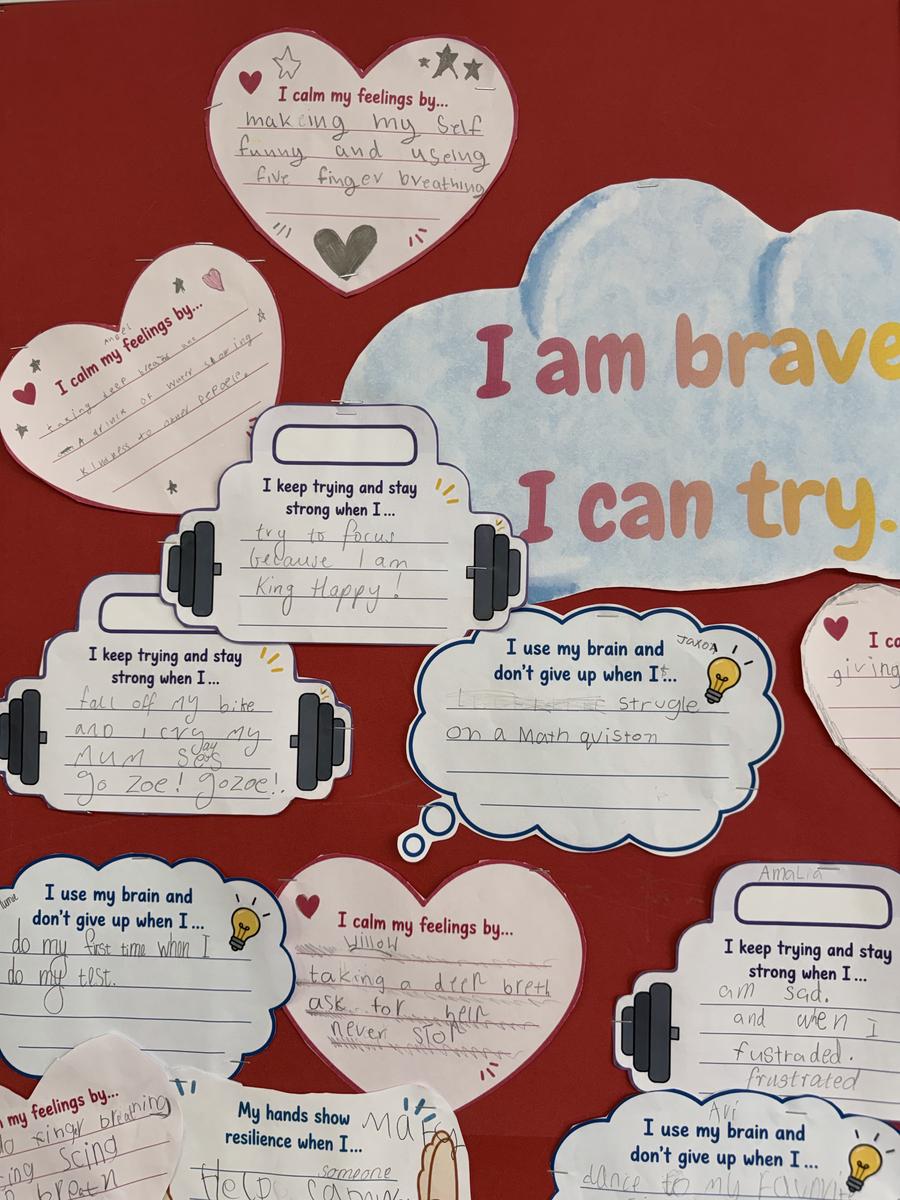 I calm my feelings by...
makeing my self
funny and useing
five finger breathing
I am brave
I can try.
Angel
I calm my feelings by...
taking deep
A drink of water
kindness to other
I keep trying and stay
strong when I...
try to focus
because I am
King Happy!
I keep trying and stay
strong when I...
fall off my bike
and I cry my
mum
say
go zoe! go zoe!.
Jaxon
I use my brain and
don't give up when I...
strugle
on a Math qviston
giving
I use my brain and
don't give up when I...
do my first time when I
do my test.
I calm my feelings by...
Willow
taking a deep breth
ask for help
never stop
Amalia
I keep trying and stay
strong when I...
am sad.
and when I
fustraded.
frustrated
my feelings by...
finger breathing
My hands show
resilience when I...
someone
Help
Avi
I use my brain and
don't give up when I...
dance to my